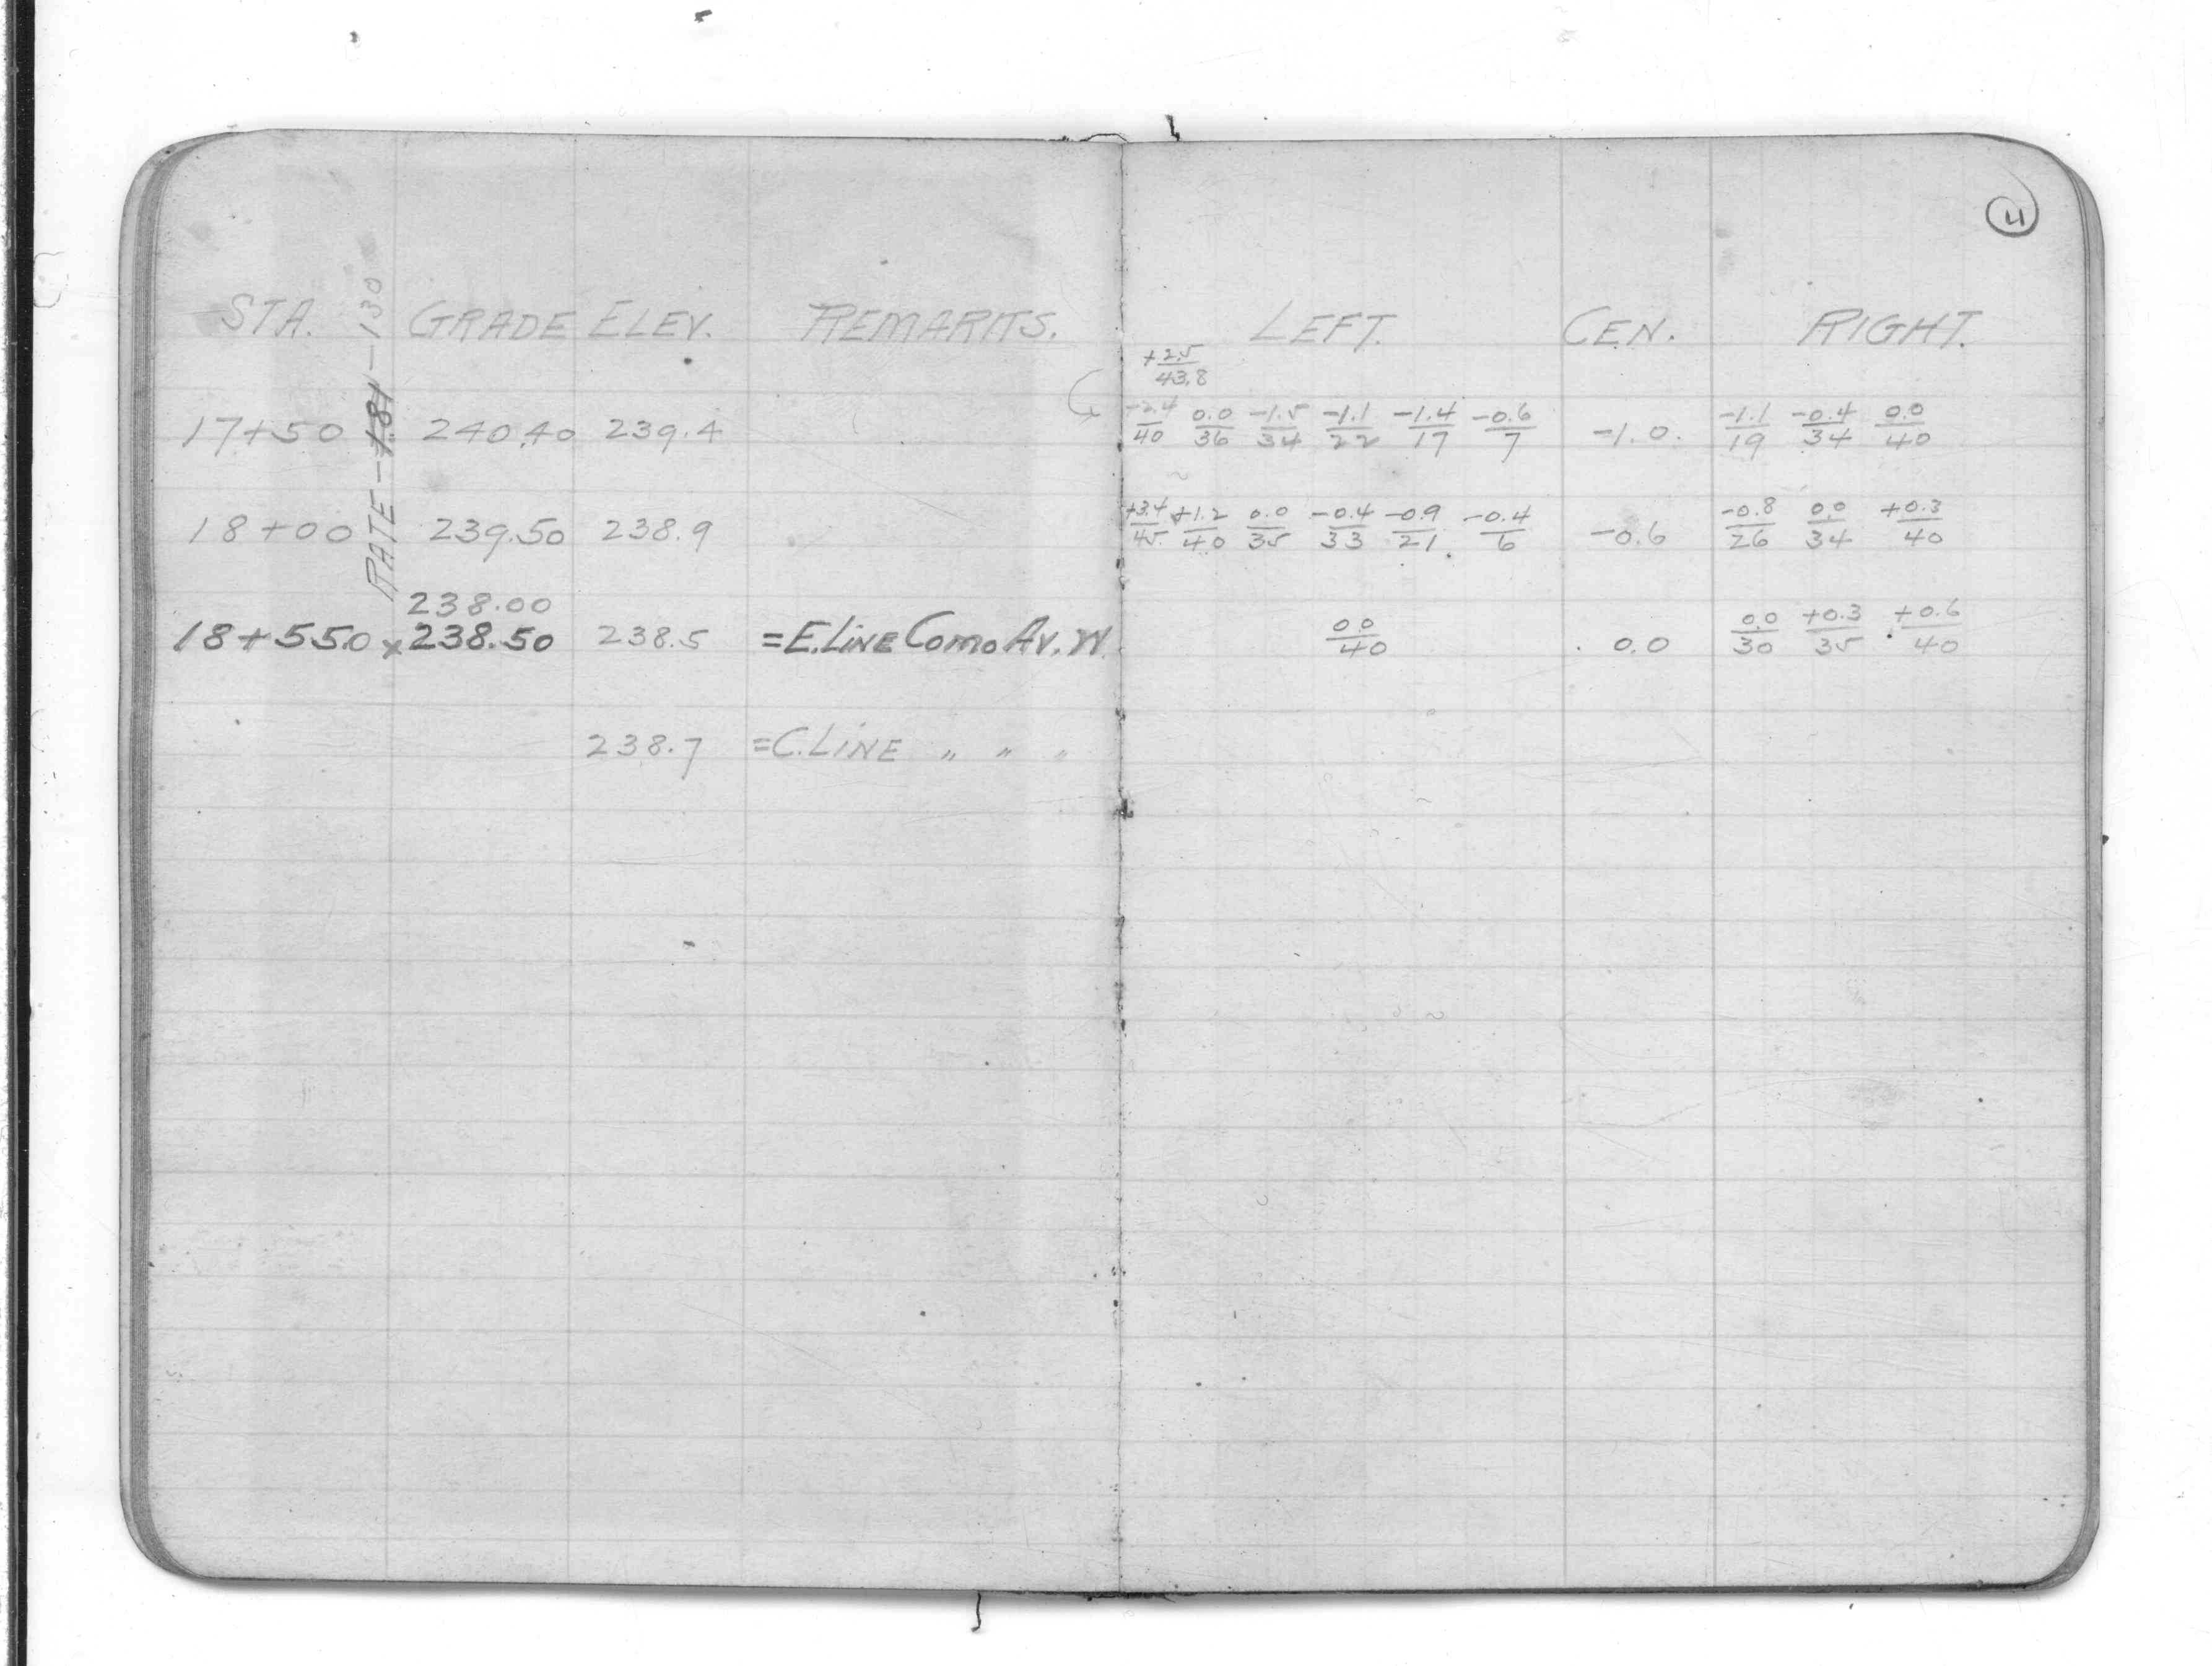 11
STA. GRADE ELEV. REMARKS. LEFT. CEN. RIGHT.
RATE -1.81 -130
+2.5/43.8
17+50 240.40 239.4 -2.4/40 0.0/36 -1.5/34 -1.1/22 -1.4/17 -0.6/7 -1.0. -1.1/19 -0.4/34 0.0/40
18+00 239.50 238.9 +3.4/45. +1.2/40 0.0/35 -0.4/33 -0.9/21. -0.4/6 -0.6 -0.8/26 0.0/34 +0.3/40
238.00
18+55.0 x 238.50 238.5 =E.LINE COMO AV. W. 0.0/40 0.0 0.0/30 +0.3/35 +0.6/40
238.7 =C.LINE " " "